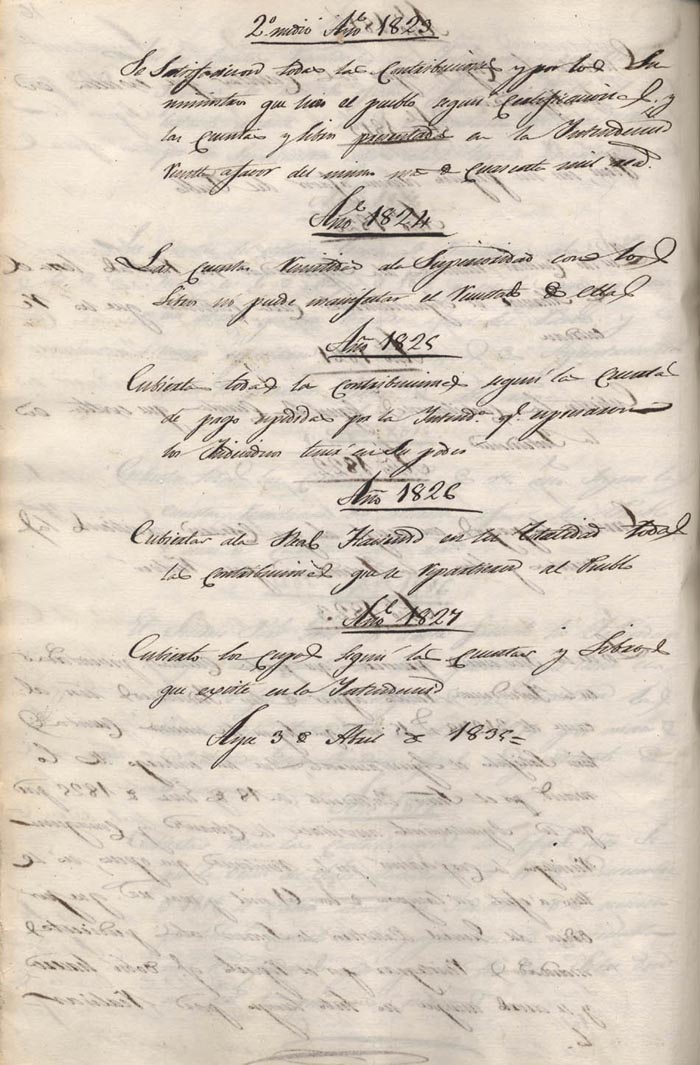 2º medio Año 1823
Se Satisfacieron todas las Contribuciones y por los Su
ministros que hizo el pueblo segun Certificaciones y
las cuentas y libros presentados en la Intendencia
resulta a favor del mismo mas de Cuarenta mil read.
Año 1824
Las cuentas remitidas ala Superioridad con los
Libros no puede manifestar el resultado de ellas
Año 1825
Cubierta todas las Contribuciones segun las Cuentas
de pago espedidas por la Intend.ª q.e
los Individuos tienen en Su poder
Año 1826
Cubiertas ala Real Hacienda en la totalidad todas
las Contribuciones que se repartieron al Pueblo
Año 1827
Cubierto los cupos segun las cuentas y Libros
que existe en la Intendencia
3 de Abril de 1835=